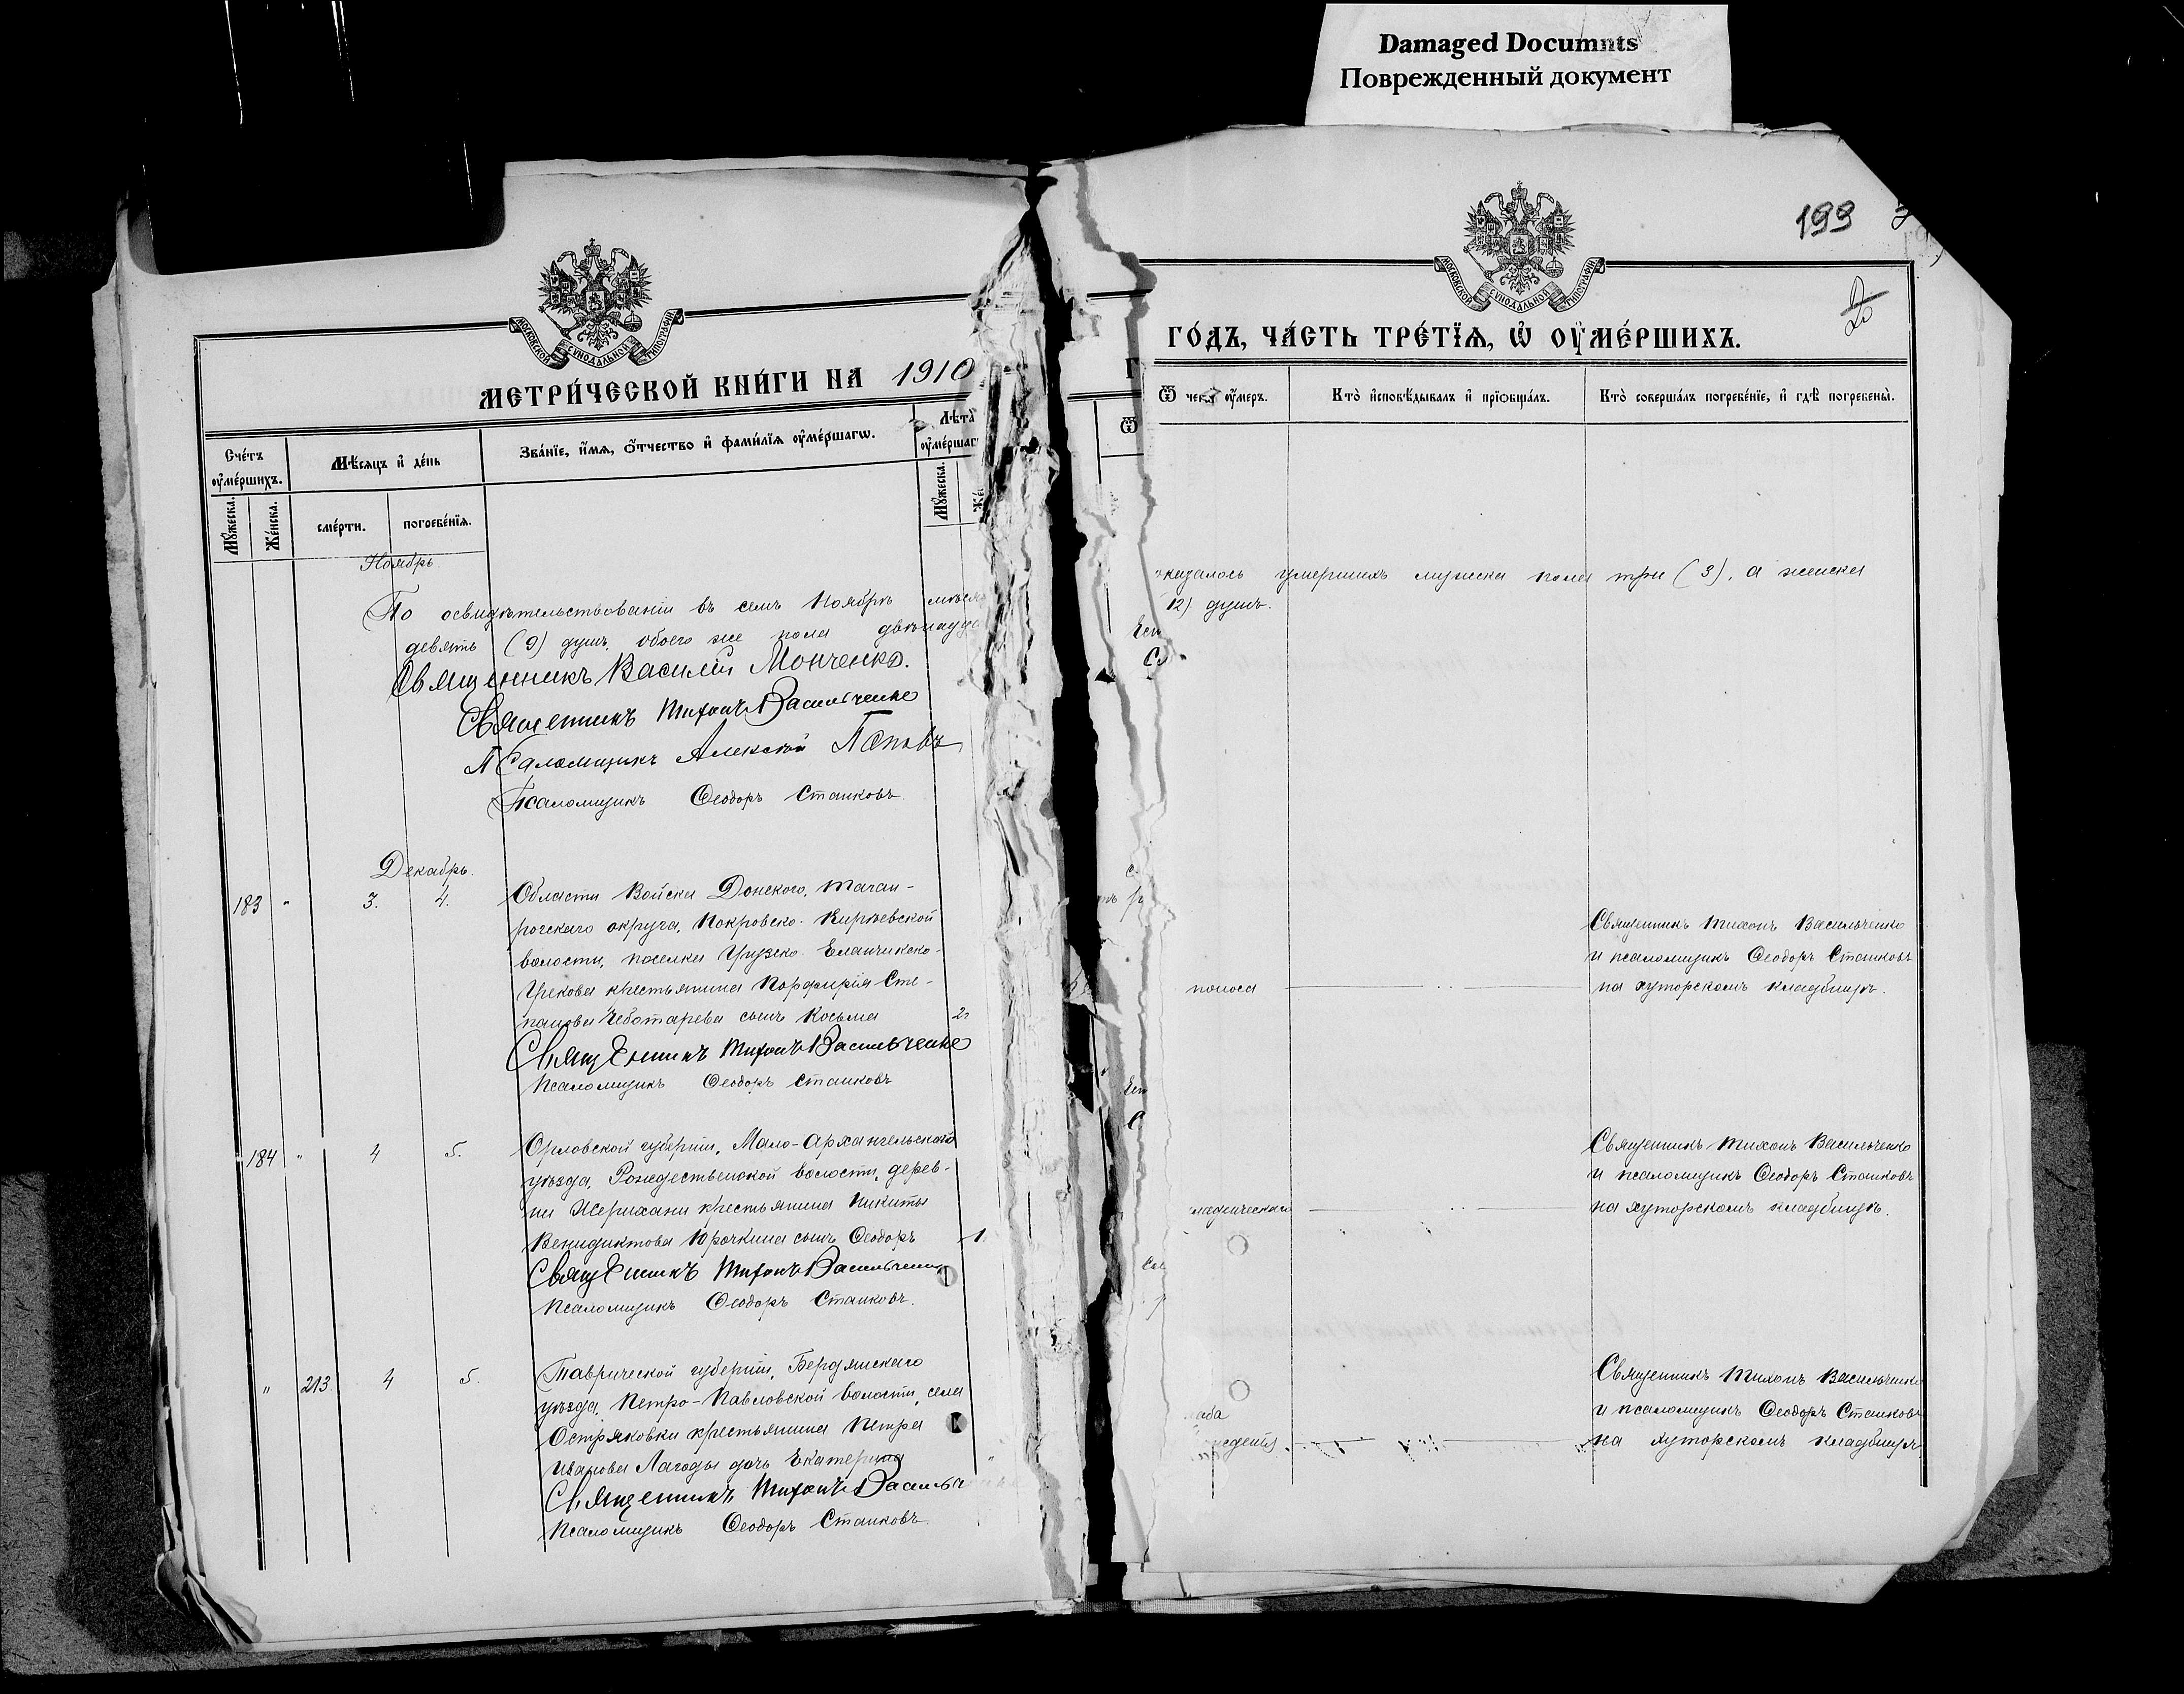 Damaged Documnts
Поврежденный документ
199
МОСКОВСКОЙ СѴНОДАЛЬНОЙ ТИПОГРАФІИ
МОСКОВСКОЙ СѴНОДАЛЬНОЙ ТИПОГРАФІИ
МЕТРИ́ЧЕСКОЙ КНИ́ГИ НА 1910
Сче́тъ оумéршихъ.
Мѣ́сяцъ и де́нь
Зва́нїе, и́мя, о́тчество и фами́лїя оуме́ршагѡ.
Лѣта оуме́ршаг
Мꙋжеска.
Же́нска.
сме́рти.
погребе́нїя.
Мꙋжеска.
Ноябрь.
По освидѣтельствованіи въ семъ Ноябрѣ мѣся
девять (9) душъ, обоего же пола двѣнадца
Священникъ Василій Монченко.
Священникъ Тихонъ Васильченко
Псаломщикъ Алексѣй Поповъ
Псаломщикъ Ѳеодоръ Станковъ
Декабрь.
183 " 3. 4. Области Войска Донского, Таган-
рогскаго округа, Покровско-Кирѣевской
волости, поселка Грузско-Еланчикско-
Грекова крестьянина Порфирія Сте-
панова Чеботарева сынъ Косьма 2
Священникъ Тихонъ Васильченко
Псаломщикъ Ѳеодоръ Станковъ
184 " 4 5. Орловской губерніи, Мало-Архангельскаго
уѣзда, Рождественской волости, дерев-
ни крестьянина Никиты
Венидиктова Юрочкина сынъ Ѳеодоръ 1.
Священникъ Тихонъ Васильченко
Псаломщикъ Ѳеодоръ Станковъ.
" 213 4 5. Таврической губерніи, Бердянскаго
уѣзда, Петро-Павловской волости, села
Остряковки крестьянина Петра
Иванова Лагоды дочь Екатерина "
Священникъ Тихонъ Василь
Псаломщикъ Ѳеодоръ Станковъ.
ГО́ДЪ, ЧА́СТЬ ТРЕ́ТЇЯ, Ѡ ОУМЕ́РШИХЪ.
Ѿ чего оу́меръ.
Кто̀ исповѣ́дывалъ и прїобща́лъ.
Кто̀ соверша́лъ погребе́нїе, и гдѣ̀ погребены̀.
оказалось умершихъ мужска пола три (3), а женска
12) душъ.
поноса
Священникъ Тихонъ Васильченко
и псаломщикъ Ѳеодоръ Станковъ
на хуторскомъ кладбищѣ.
Священникъ Тихонъ Васильченко
и псаломщикъ Ѳеодоръ Станковъ
на хуторскомъ кладбищѣ.
Священникъ Тихонъ Васильченко
и псаломщикъ Ѳеодоръ Станковъ
на хуторскомъ кладбищѣ